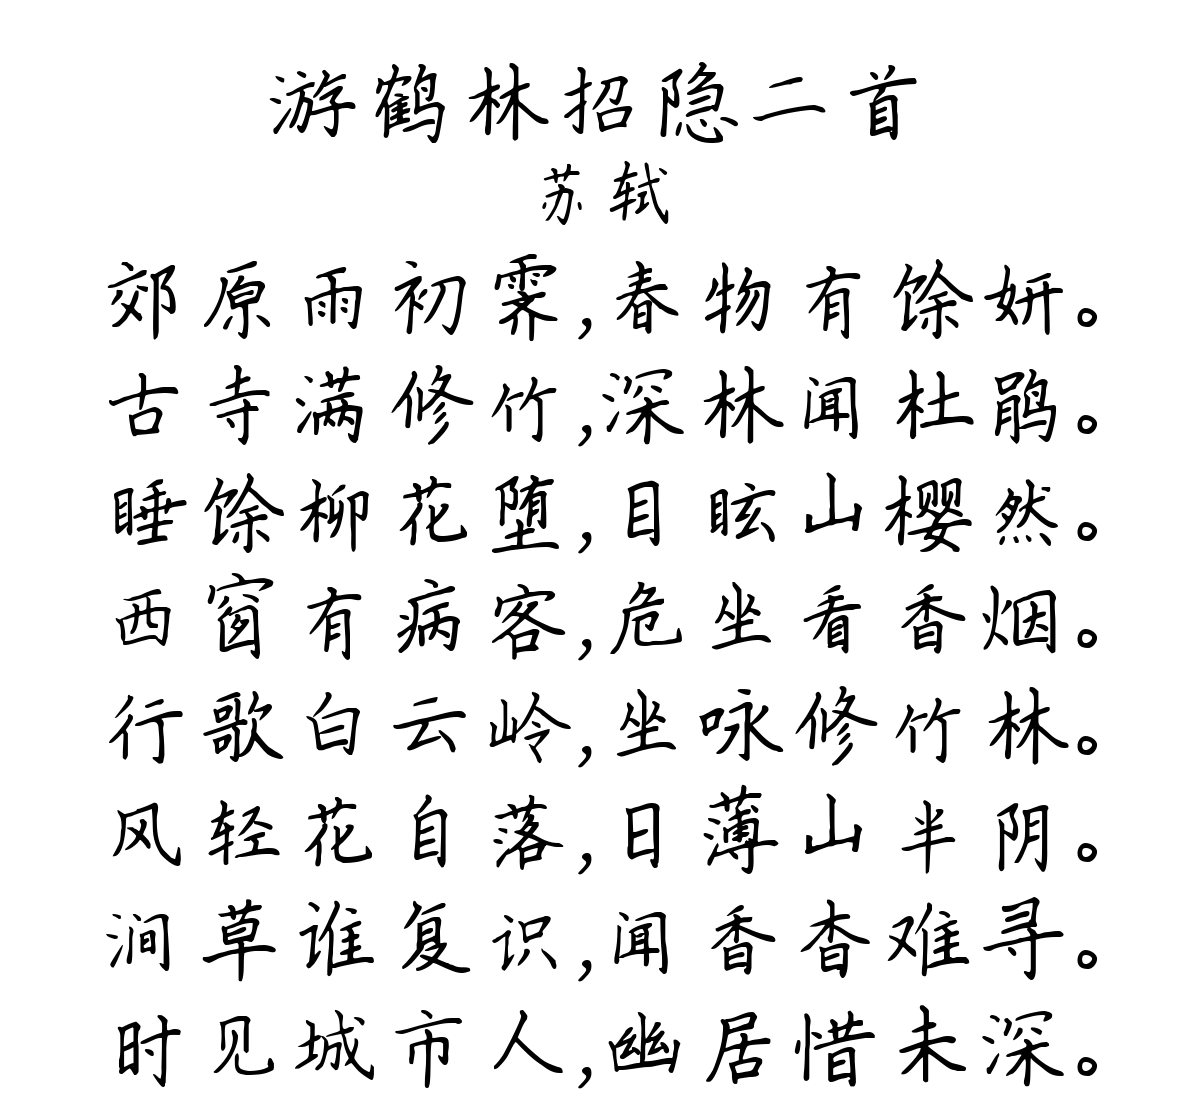 游鹤林招隐二首
苏轼
郊原雨初霁,春物有馀妍。
古寺满修竹,深林闻杜鹃。
睡馀柳花堕,目眩山樱然。
西窗有病客,危坐看香烟。
行歌白云岭,坐咏修竹林。
风轻花自落,日薄山半阴。
涧草谁复识,闻香杳难寻。
时见城市人,幽居惜未深。